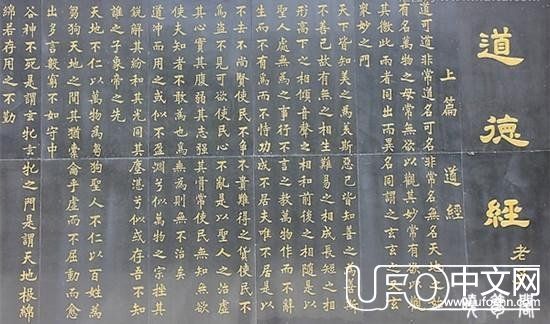 道德經
老
上篇 道經
道可道非常道名可名非常名無名天地之始
有名萬物之母常無欲以觀其妙常有欲以觀
其徼此兩者同出而異名同謂之玄玄之又玄
眾妙之門
天下皆知美之為美斯惡已皆知善之為善斯
不善已故有無之相生難易之相成長短之相
形高下之相傾音聲之相和前後之相隨是以
聖人處無為之事行不言之教萬物作而不辭
生而不有為而不恃功成不居夫唯不居是以
不去不尚賢使民不爭不貴難得之貨使民不
為盜不見可欲使民心不亂是以聖人之治虛
其心實其腹弱其志強其骨常使民無知無欲
使夫知者不敢為也為無為則無不治矣
道沖而用之或似不盈淵兮似萬物之宗挫其
銳解其紛和其光同其塵湛兮似或存吾不知
誰之子象帝之先
天地不仁以萬物為芻狗聖人不仁以百姓為
芻狗天地之間其猶橐籥乎虛而不屈動而愈
出多言數窮不如守中
谷神不死是謂玄牝玄牝之門是謂天地根綿
綿若存用之不勤
UFO中文网
www.ufocnn.com